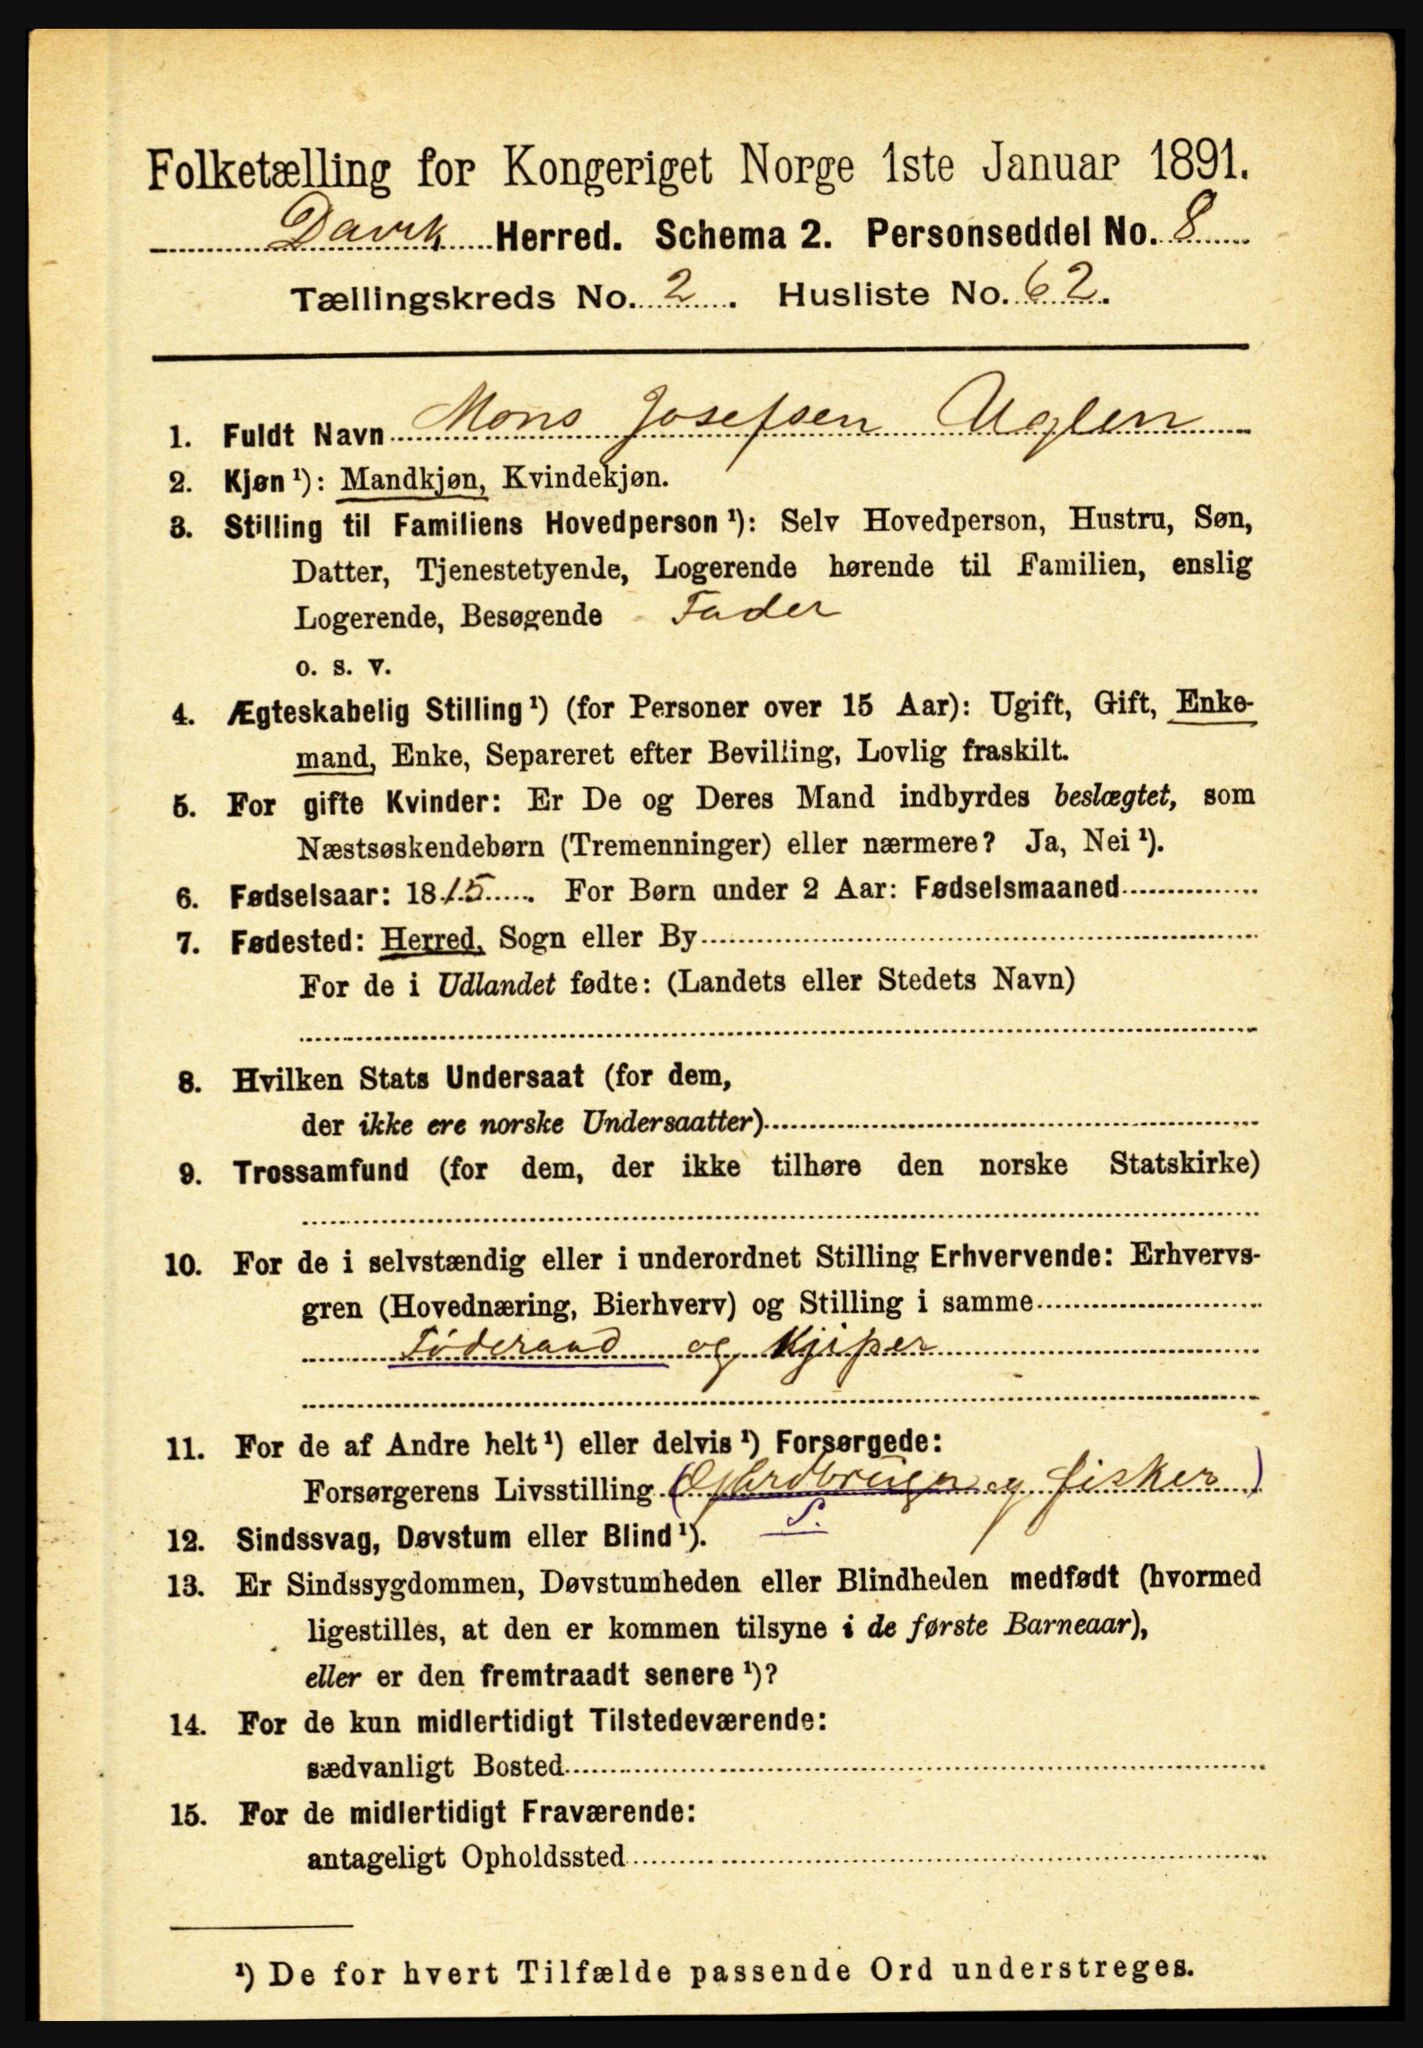 Folketælling for Kongeriget Norge 1ste Januar 1891.
Davik Herred. Schema 2. Personseddel No. 8
Tællingskreds No. 2. Husliste No. 62.
1. Fuldt Navn Mons Josefsen Uglen
2. Kjøn ¹): Mandkjøn, Kvindekjøn.
3. Stilling til Familiens Hovedperson ¹): Selv Hovedperson, Hustru, Søn,
Datter, Tjenestetyende, Logerende hørende til Familien, enslig
Logerende, Besøgende Fader
o. s. v.
4. Ægteskabelig Stilling ¹) (for Personer over 15 Aar): Ugift, Gift, Enke-
mand, Enke, Separeret efter Bevilling, Lovlig fraskilt.
5. For gifte Kvinder: Er De og Deres Mand indbyrdes beslægtet, som
Næstsøskendebørn (Tremenninger) eller nærmere? Ja, Nei ¹).
6. Fødselsaar: 1815. For Børn under 2 Aar: Fødselsmaaned
7. Fødested: Herred, Sogn eller By
For de i Udlandet fødte: (Landets eller Stedets Navn)
8. Hvilken Stats Undersaat (for dem,
der ikke ere norske Undersaatter)
9. Trossamfund (for dem, der ikke tilhøre den norske Statskirke)
10. For de i selvstændig eller i underordnet Stilling Erhvervende: Erhvervs-
gren (Hovednæring, Bierhverv) og Stilling i samme
Föderaad og Kjiper
11. For de af Andre helt ¹) eller delvis ¹) Forsørgede:
Forsørgerens Livsstilling (Gardbruger og fisker)
S.
12. Sindssvag, Døvstum eller Blind ¹).
13. Er Sindssygdommen, Døvstumheden eller Blindheden medfødt (hvormed
ligestilles, at den er kommen tilsyne i de første Barneaar),
eller er den fremtraadt senere ¹)?
14. For de kun midlertidigt Tilstedeværende:
sædvanligt Bosted
15. For de midlertidigt Fraværende:
antageligt Opholdssted
¹) De for hvert Tilfælde passende Ord understreges.